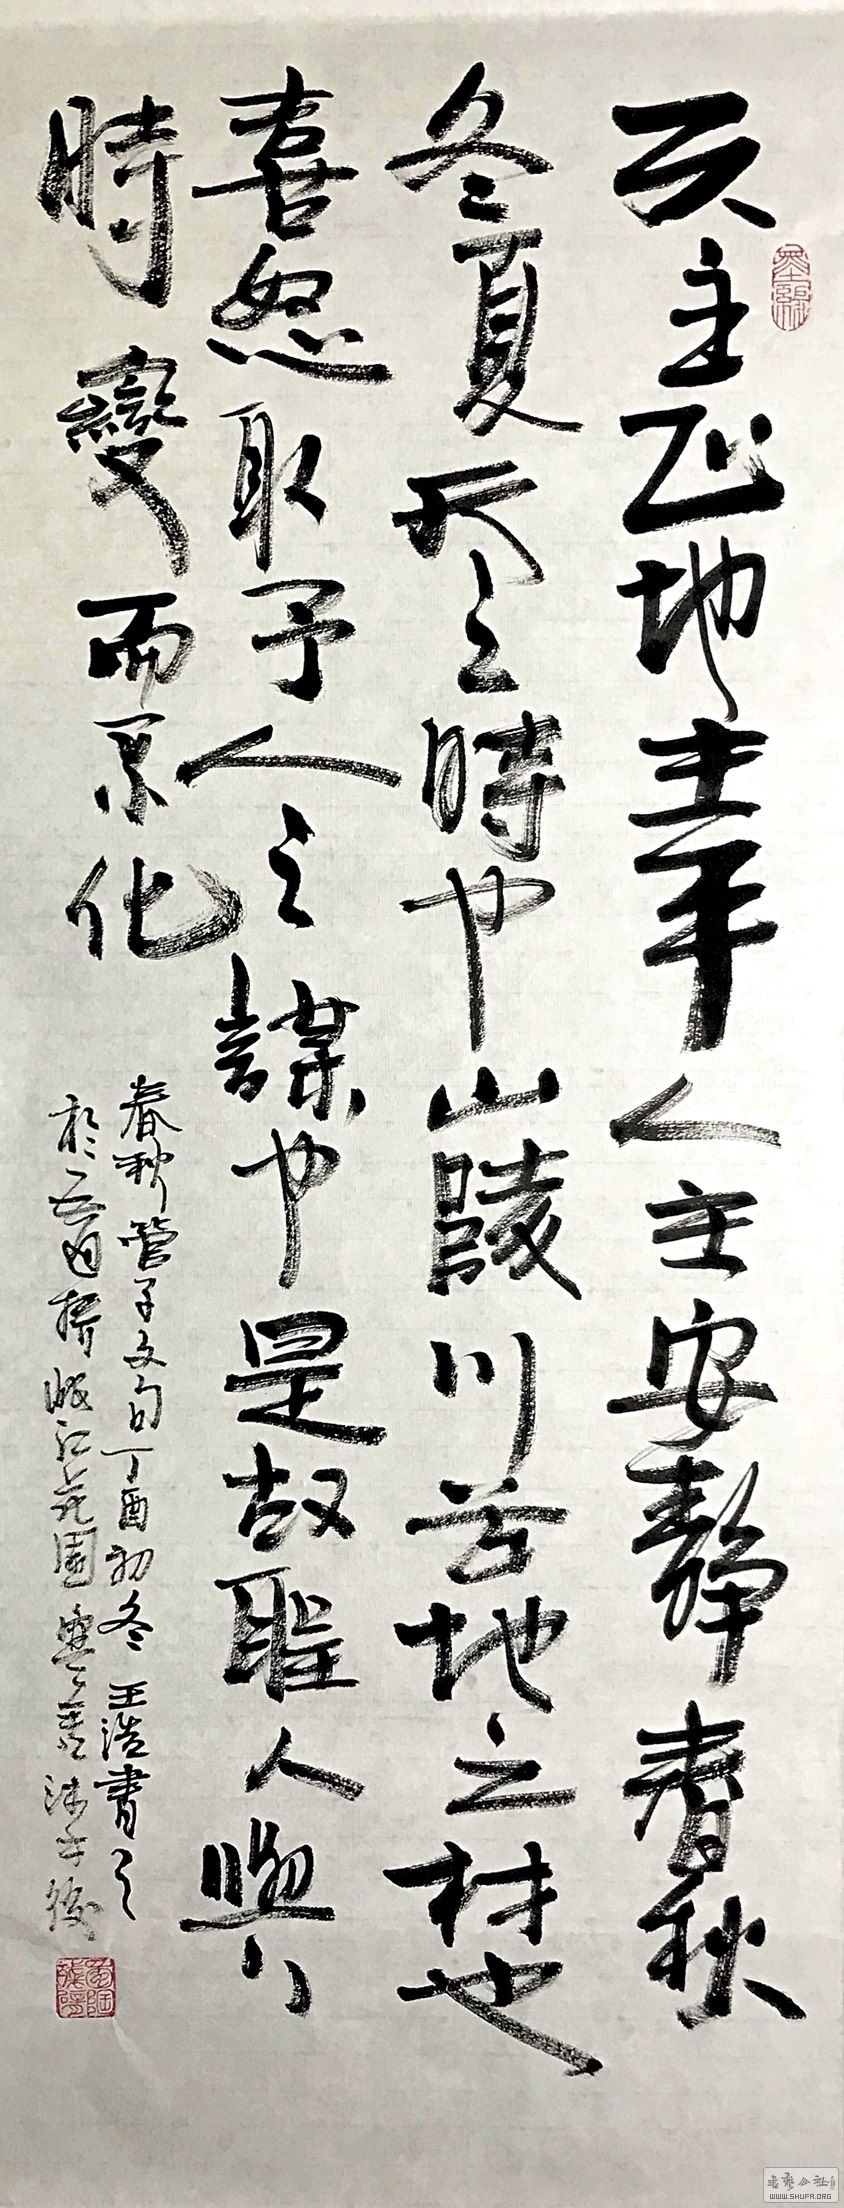 天主正地主平人主安静春秋
冬夏天之時也山陵川谷地之材也
喜怒取予人之謀也是故聖人與
時變而不化
春秋管子文句丁酉初冬王浩書之
於 橋 江花園
書藝公社
WWW.SHUFA.ORG